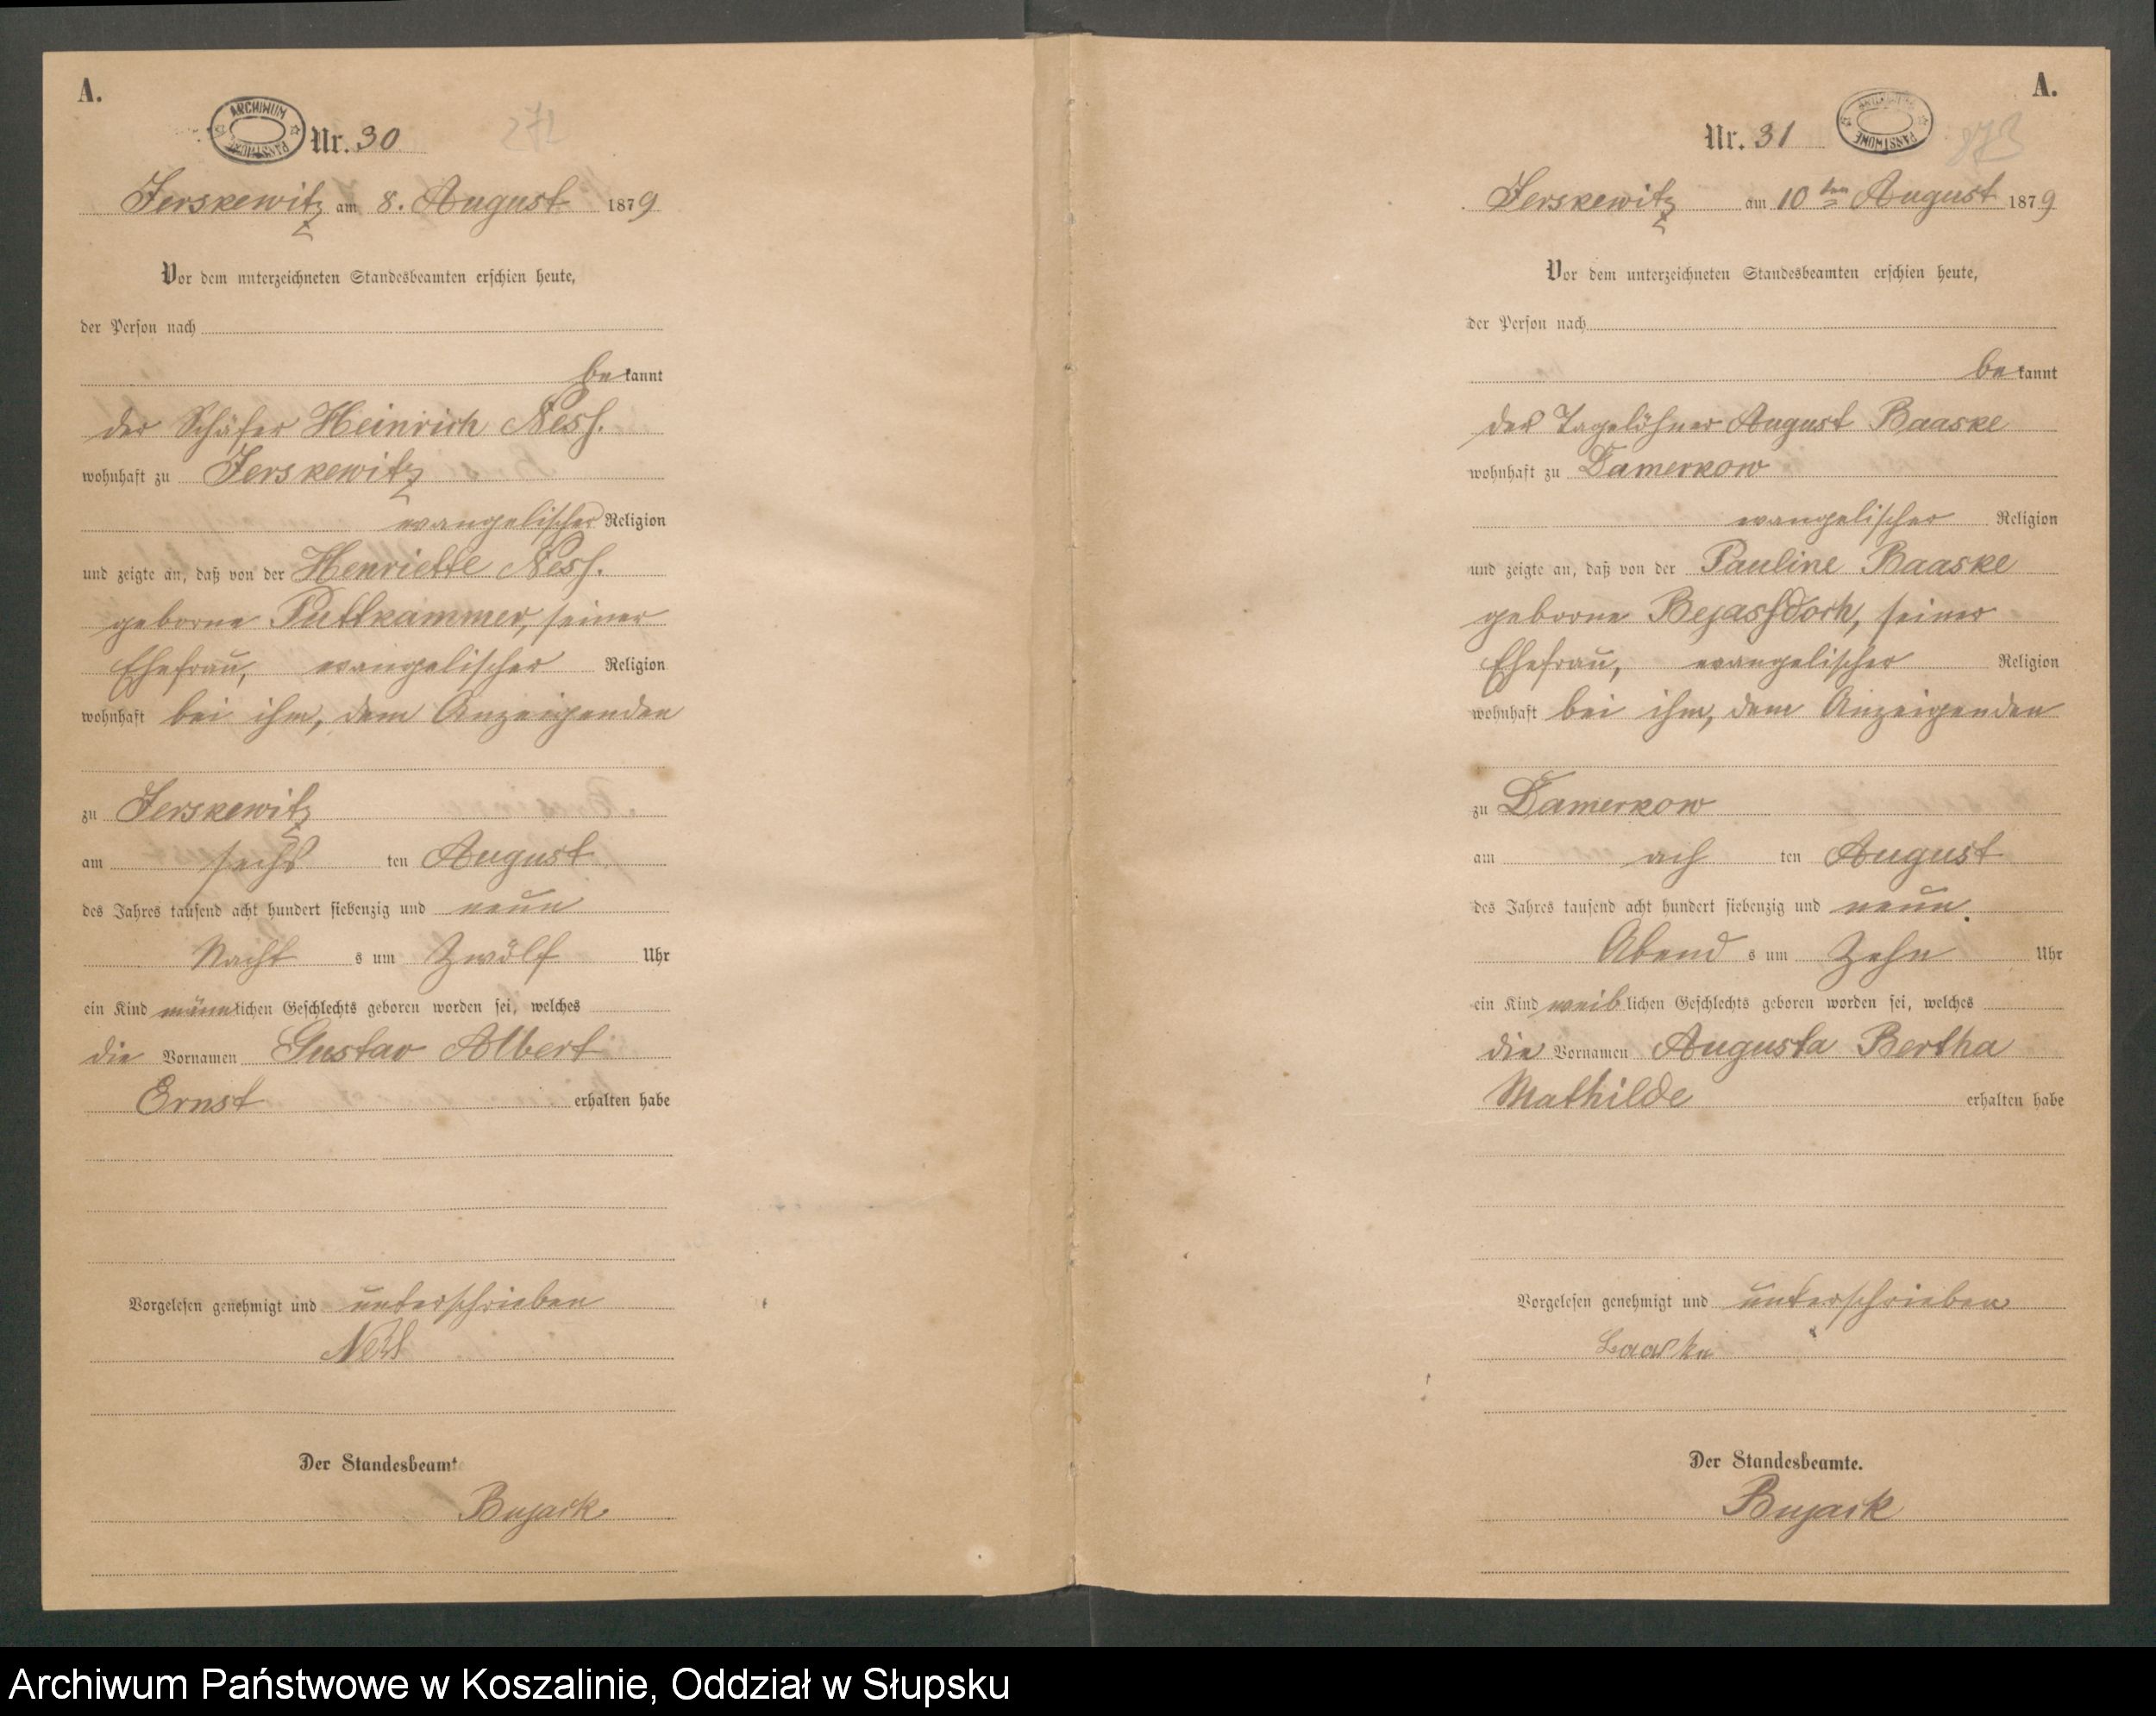 A.
ARCHIWUM PAŃSTWOWE
Nr. 30
272
Jerskewitz am 8. August 1879
Vor dem unterzeichneten Standesbeamten erschien heute,
der Person nach
bekannt
der Schäfer Heinrich Ness.
wohnhaft zu Jerskewitz
evangelischer Religion
und zeigte an, daß von der Henriette Ness.
geborne Puttkammer, seiner
Ehefrau, evangelischer Religion
wohnhaft bei ihm, dem Anzeigenden
zu Jerskewitz
am sechs ten August
des Jahres tausend acht hundert siebenzig und neun
Nacht s um Zwölf Uhr
ein Kind männlichen Geschlechts geboren worden sei, welches
die Vornamen Gustav Albert
Ernst erhalten habe
Vorgelesen genehmigt und unterschrieben
Neß
Der Standesbeamte
Bujack
A.
Nr. 31
ARCHIWUM PAŃSTWOWE
273
Jerskewitz am 10ten August 1879
Vor dem unterzeichneten Standesbeamten erschien heute,
der Person nach
bekannt
der Tagelöhner August Baaske
wohnhaft zu Damerkow
evangelischer Religion
und zeigte an, daß von der Pauline Baaske
geborne Bejassdorh, seiner
Ehefrau, evangelischer Religion
wohnhaft bei ihm, dem Anzeigenden
zu Damerkow
am ach ten August
des Jahres tausend acht hundert siebenzig und neun.
Abend s um Zehn Uhr
ein Kind weiblichen Geschlechts geboren worden sei, welches
die Vornamen Augusta Bertha
Mathilde erhalten habe
Vorgelesen genehmigt und unterschrieben
Baaske
Der Standesbeamte.
Bujack
Archiwum Państwowe w Koszalinie, Oddział w Słupsku